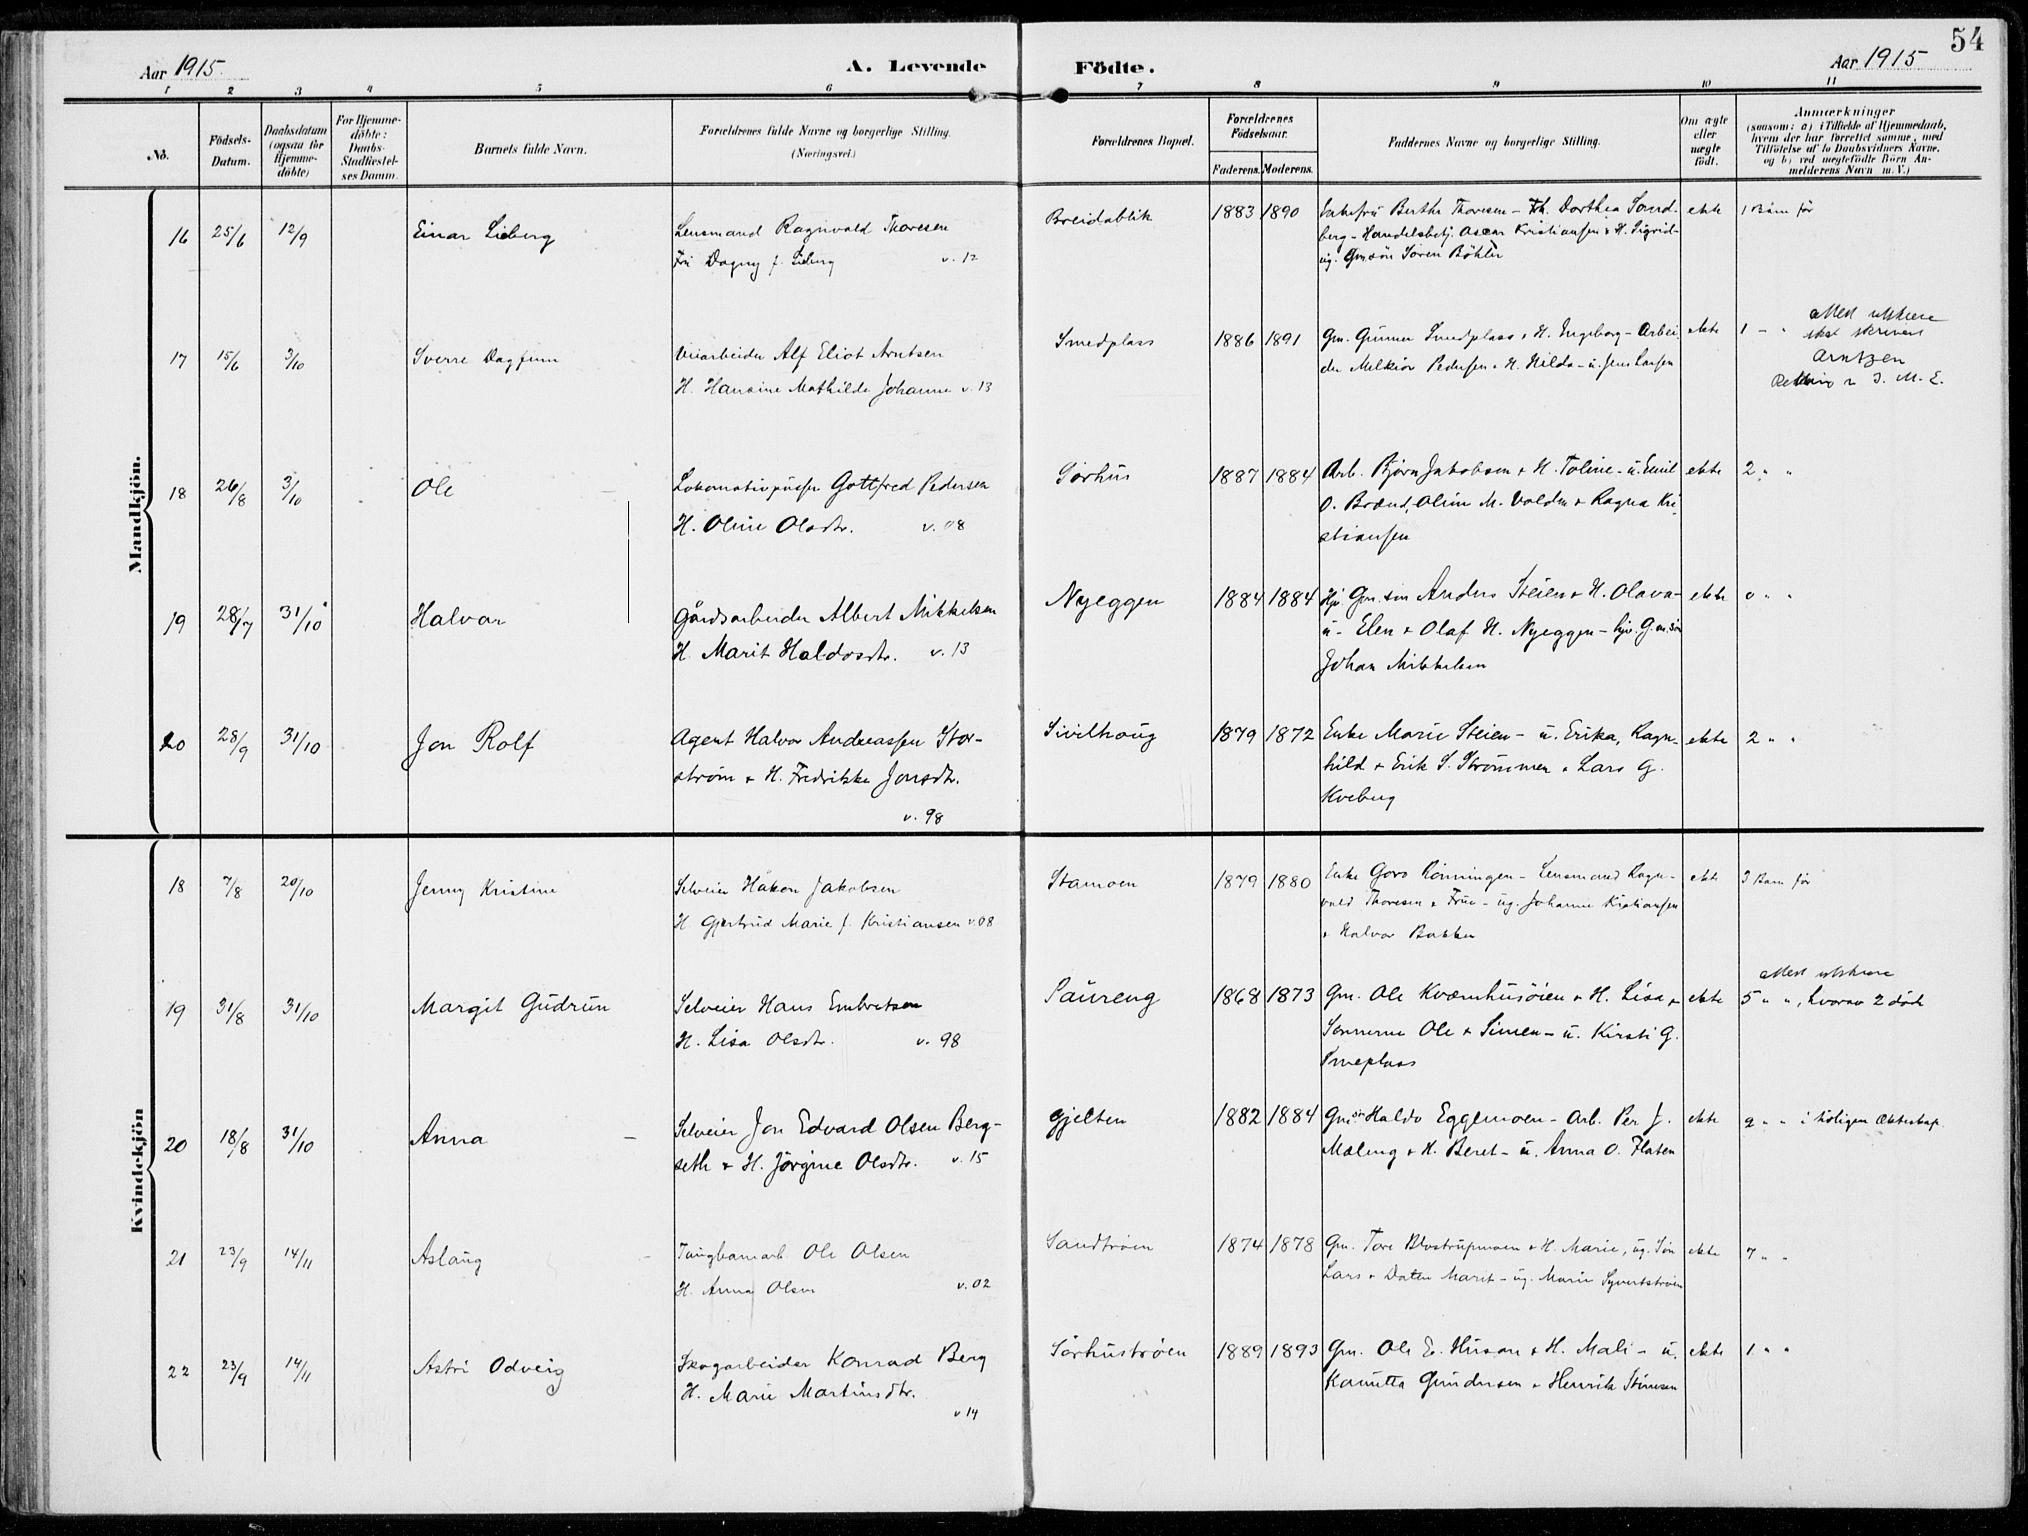 54
Aar 1915.
A. Levende
Födte.
Aar 1915
1 2 3 4 5 6 7 8 9 10 11
No.
Födsels-
Datum.
Daabsdatum
(ogsaa for
Hjemme-
döbte)
For Hjemme-
döbte:
Daabs-
Stadfæstel-
ses Datum.
Barnets fulde Navn.
Forældrenes fulde Navne og borgerlige Stilling.
(Næringsvei.)
Forældrenes Bopæl.
Forældrenes
Födselsaar.
Faderens. Moderens.
Faddernes Navne og borgerlige Stilling.
Om ægte
eller
uægte
födt.
Anmærkninger
(saasom: a) i Tilfælde af Hjemmedaab,
hvem der har forrettet samme, med
Tilföielse af to Daabsvidners Navne.
og b) ved uegtefödte Börn An-
melderens Navn m. V.)
Mandkjön.
16 25/6 12/9 Einar Lieberg
Lensmand Ragnvald Thoresen
Fru Dagny f. Lieberg v. 12
Breidablik 1883 1890
Enkefru Berthe Thoresen - Fr. Dorthea Sand-
berg - Handelsbetj. Oscar Kristiansen & H. Sigrid -
ug. Gmsön Sören Böhler
ekte 1 Barn før
17 15/6 3/10 Sverre Dagfinn
Veiarbeider Alf Eliot Arntsen
H. Hansine Mathilde Johanne v. 13
Smedplass 1886 1891
Gm. Gunnar Smedplass & H. Ingeborg - Arbei
der Melkiör Pedersen & H. Hilda - u. Jens Hansen
ekte 1 - "
skal skrives
Arntzen
18 26/8 3/10 Ole
Lokomotivpusser Gottfred Pedersen
H. Oline Olsdtr. v. 08
Sörhus 1887 1884
Arb. Bjørn Jakobsen & H. Toline - u. Emil
O. Brænd, Oline M. Volden & Ragna Kri
stiansen
ekte 2 " "
19 28/7 31/10 Halvor
Gårdsarbeider Albert Mikkelsen
H. Marit Haldosdtr. v. 13
Nyeggen 1884 1884
Hjv. Gm. søn Anders Steien & H. Olava -
u - Elen & Olaf H. Nyeggen - hjv. G.m.søn
Johan Mikkelsen
ekte 0 " "
20 28/9 31/10 Jon Rolf
Agent Halvor Andreassen Stor-
strøm & H. Fredrikke Jonsdtr.
v. 98
Sivilhaug 1879 1872
Enke Marie Steien - u. Erika, Ragn-
hild & Erik S. Strømmen & Lars G.
Kveberg
ekte 2 " "
Kvindekjön
18 7/8 20/10 Jenny Kristine
Selveier Håkon Jakobsen
H. Gjertrud Marie f. Kristiansen v. 08
Stamoen 1879 1880
Enke Goro Rönningen - Lensmand Ragn-
vald Thoresen & Frue - ug. Johanne Kristiansen
& Halvor Bakken
ekte 3 Barn før
19 31/8 31/10 Margit Gudrun
Selveier Hans Embretsen
H. Lisa Olsdtr. v. 98
Paureng 1868 1873
Gm. Ole Kværnhusöien & H. Lisa &
Sønnerne Ole & Simen - u. Kirsti G.
Trueplass
ekte 5 " ", hvorav 2 døde
20 18/8 31/10 Anna
Selveier Jon Edvard Olsen Berg-
seth & H. Jörgine Olsdtr. v. 15
Gjelten 1882 1884
Gm.søn Haldo Eggemoen - Arb. Per J.
Mæleng & H. Beret - u. Anna O. Flaten
ekte 2 " " i tidligere Ekteskap
21 23/9 14/11 Aslaug
Ole Olsen
H. Anna Olsen v. 02
Sandtrøen 1874 1878
Gm. Tore Blostrupmoen & H. Marie, ug. Søn
Lars & Datter Marit - ug. Marie Syvertstrøen
ekte 7 " "
22 23/9 14/11 Astri Odveig
Skogarbeider Konrad Berg
H. Marie Martinsdtr.
v 14
Sörhuströen 1889 1893
Gm. Ole E. Husan & H. Mali - u.
Kanutta Gundersen & Henrik Simensen
ekte 1 " "